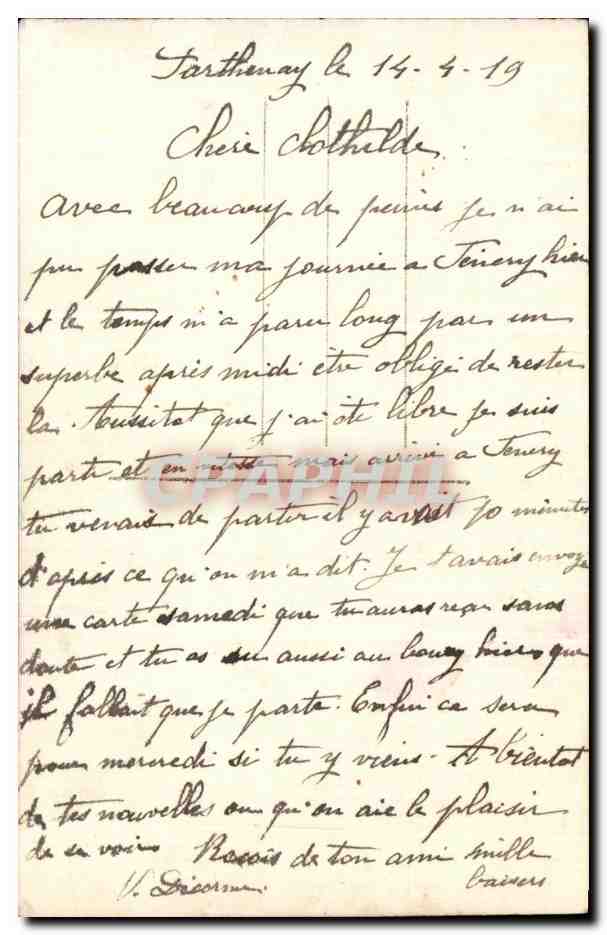 Parthenay le 14-4-19
Cheré Clothilde
Avec beaucoup de peines je n'ai
pu passer ma journée a Fenery hier
et le temps m'a paru long par un
superbe après midi être obligé de rester
la. Aussitot que j'ai été libre je suis
parti et en vitesse mais arrivé a Fenery
CPAPHIL
tu venais de partir il y avait 10 minutes
d'après ce qu'on m'a dit. Je t'avais envoyé
une carte samedi que tu auras reçu sans
doute et tu as su aussi au bourg hier que
il fallait que je parte. Enfin ce sera
pour mercredi si tu y viens. A bientot
de tes nouvelles ou qu'on aie le plaisir
de se voir Reçois de ton ami mille
baisers
V.